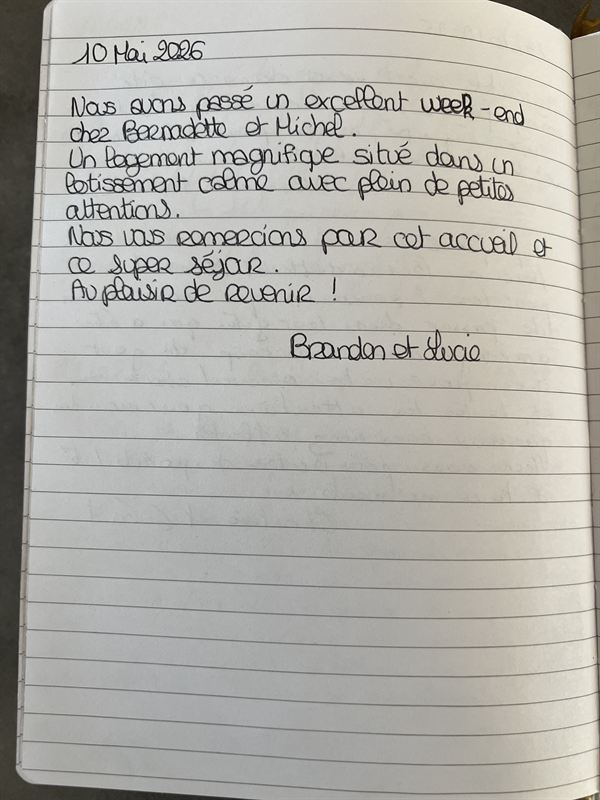 10 Mai 2026
Nous avons passé un excellent week-end
chez Bernadette et Michel.
Un logement magnifique situé dans un
lotissement calme avec plein de petites
attentions.
Nous vous remercions pour cet accueil et
ce super séjour.
Au plaisir de revenir !
Brandon et Lucie